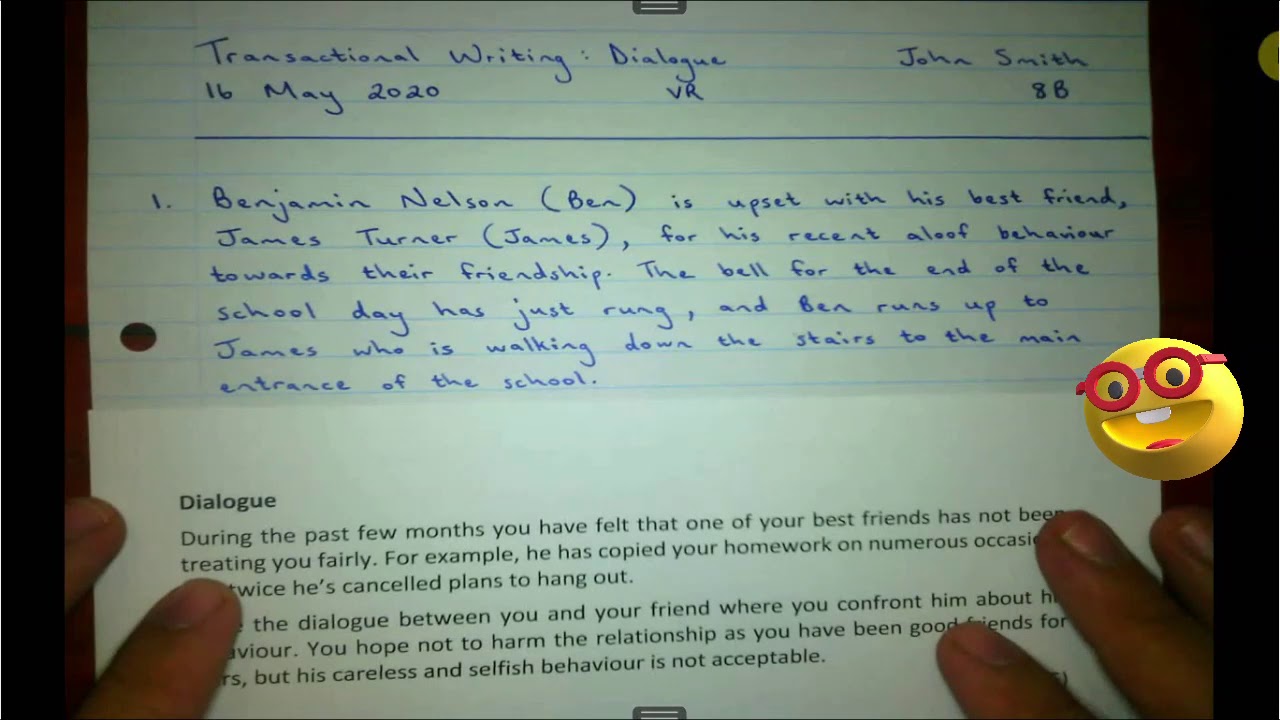 Transactional Writing: Dialogue John Smith
16 May 2020 VR 8B
1. Benjamin Nelson (Ben) is upset with his best friend,
James Turner (James), for his recent aloof behaviour
towards their friendship. The bell for the end of the
school day has just rung, and Ben runs up to
James who is walking down the stairs to the main
entrance of the school.
Dialogue
During the past few months you have felt that one of your best friends has not been
treating you fairly. For example, he has copied your homework on numerous
twice he's cancelled plans to hang out.
the dialogue between you and your friend where you confront him about
You hope not to harm the relationship as you have been good friends for
but his careless and selfish behaviour is not acceptable.